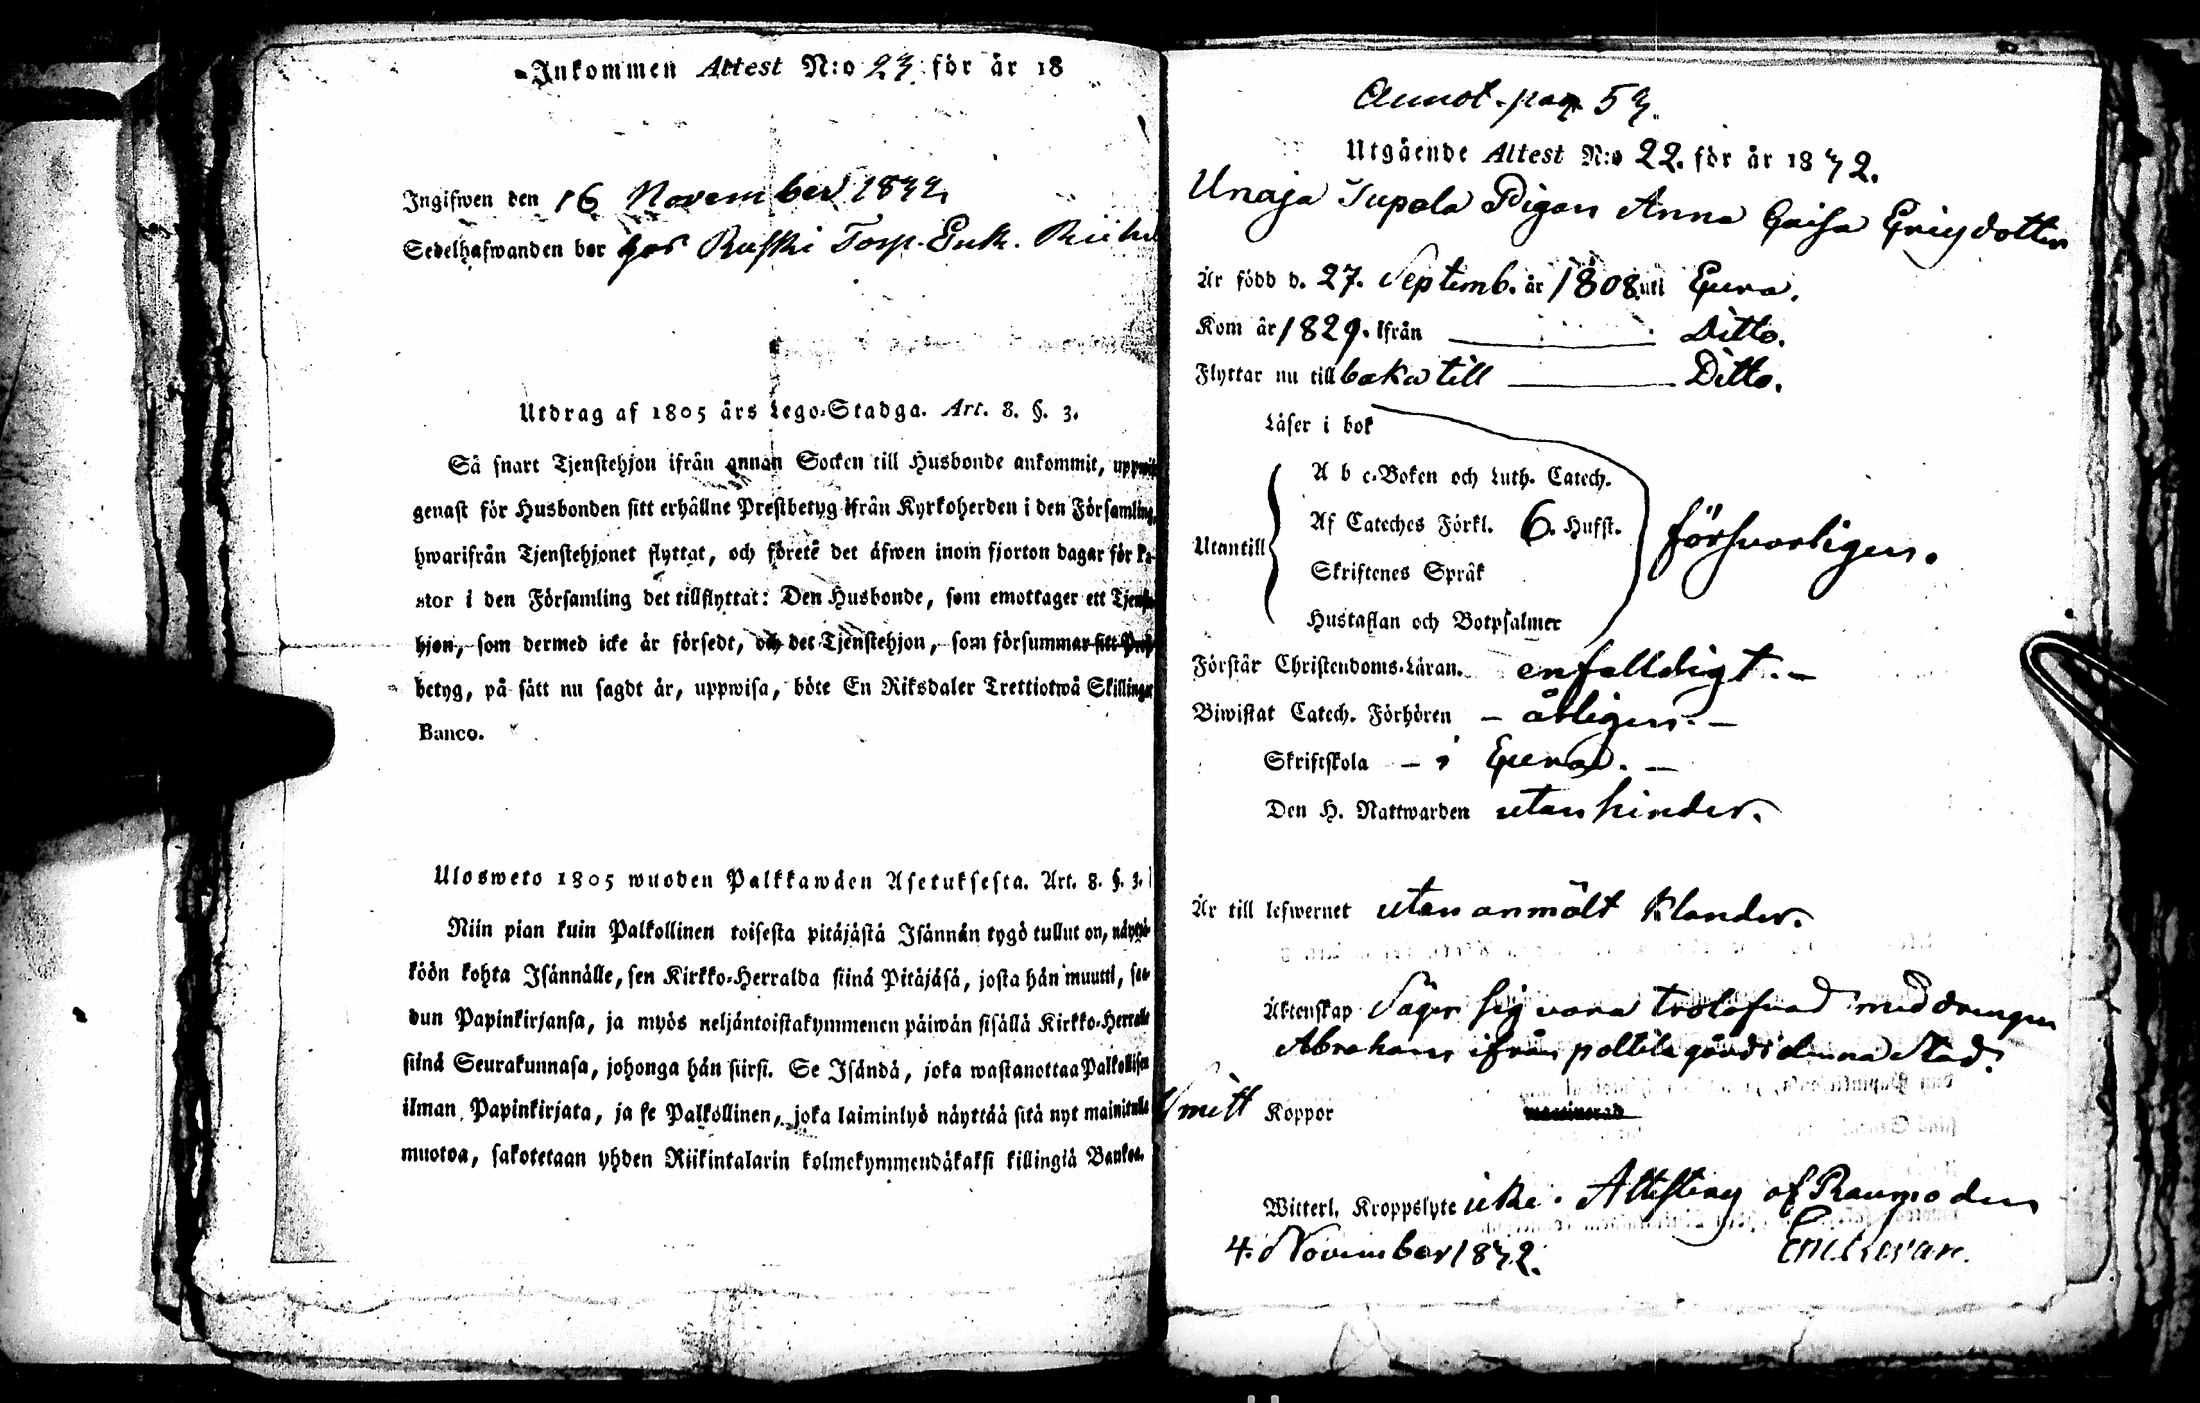 Inkommen Attest N:o 23 för år 18
Ingifwen den 16 November 1832
Sedelhafwanden bor hos Ruski Torp. Enk.
Utdrag af 1805 års Lego-Stadga. Art. 8. §. 3.
Så snart Tjenstehjon ifrån annan Socken till Husbonde ankommit, uppwise
genast för Husbonden sitt erhållne Prestbetyg ifrån Kyrkoherden i den Församling,
hwarifrån Tjenstehjonet flyttat, och förete det äfwen inom fjorton dagar för Pa-
stor i den Församling det tillflyttat: Den Husbonde, som emottager ett Tjenste-
hjon, som dermed icke är försedt, och det Tjenstehjon, som försummar sitt Prest-
betyg, på sätt nu sagdt är, uppwisa, böte En Riksdaler Trettiotwå Skillingar
Banco.
Ulosweto 1805 wuoden Palkkawäen Asetuksesta. Art. 8. §. 3.
Niin pian kuin Palkollinen toisesta pitäjästä Isännän tygö tullut on, näyttä-
köön kohta Isännälle, sen Kirkko-Herralda siinä Pitäjäsä, josta hän muutti, saa-
dun Papinkirjansa, ja myös neljäntoistakymmenen päiwän sisällä Kirkko-Herralle
siinä Seurakunnasa, johonga hän siirsi. Se Isändä, joka wastanottaa Palkollisen
ilman Papinkirjata, ja se Palkollinen, joka laiminlyö näyttää sitä nyt mainitulla
muotoa, sakotetaan yhden Riikintalarin kolmekymmendäkaksi killingiä Bankoa.
Annot. pag 53.
Utgående Attest N:o 22. för år 1832.
Unaja Supala Pigan Anna Caisa Ericsdotter
Är född d. 27. Septemb. år 1808. uti Eura.
Kom år 1829. ifrån Ditto.
Flyttar nu tillbaka till Ditto.
Läser i bok
A b c-Boken och Luth. Catech.
Af Cateches Förkl. 6. Hufst.
Utantill försvarligen.
Skriftenes Språk
Hustaflan och Botpsalmer
Förstår Christendoms-Läran. enfalldigt. -
Biwistat Catech. Förhören - årligen. -
Skriftskola - i Eura. -
Den H. Nattwarden utan hinder.
Är till lefwernet utan anmält klander.
Äktenskap Säger sig vara trolofvad med drengen
Abraham ifrån Pollila gård i denna Stad.
Smitt Koppor
Witterl. Kroppslyte icke. Attesting af Raumo den
4. November 1832.